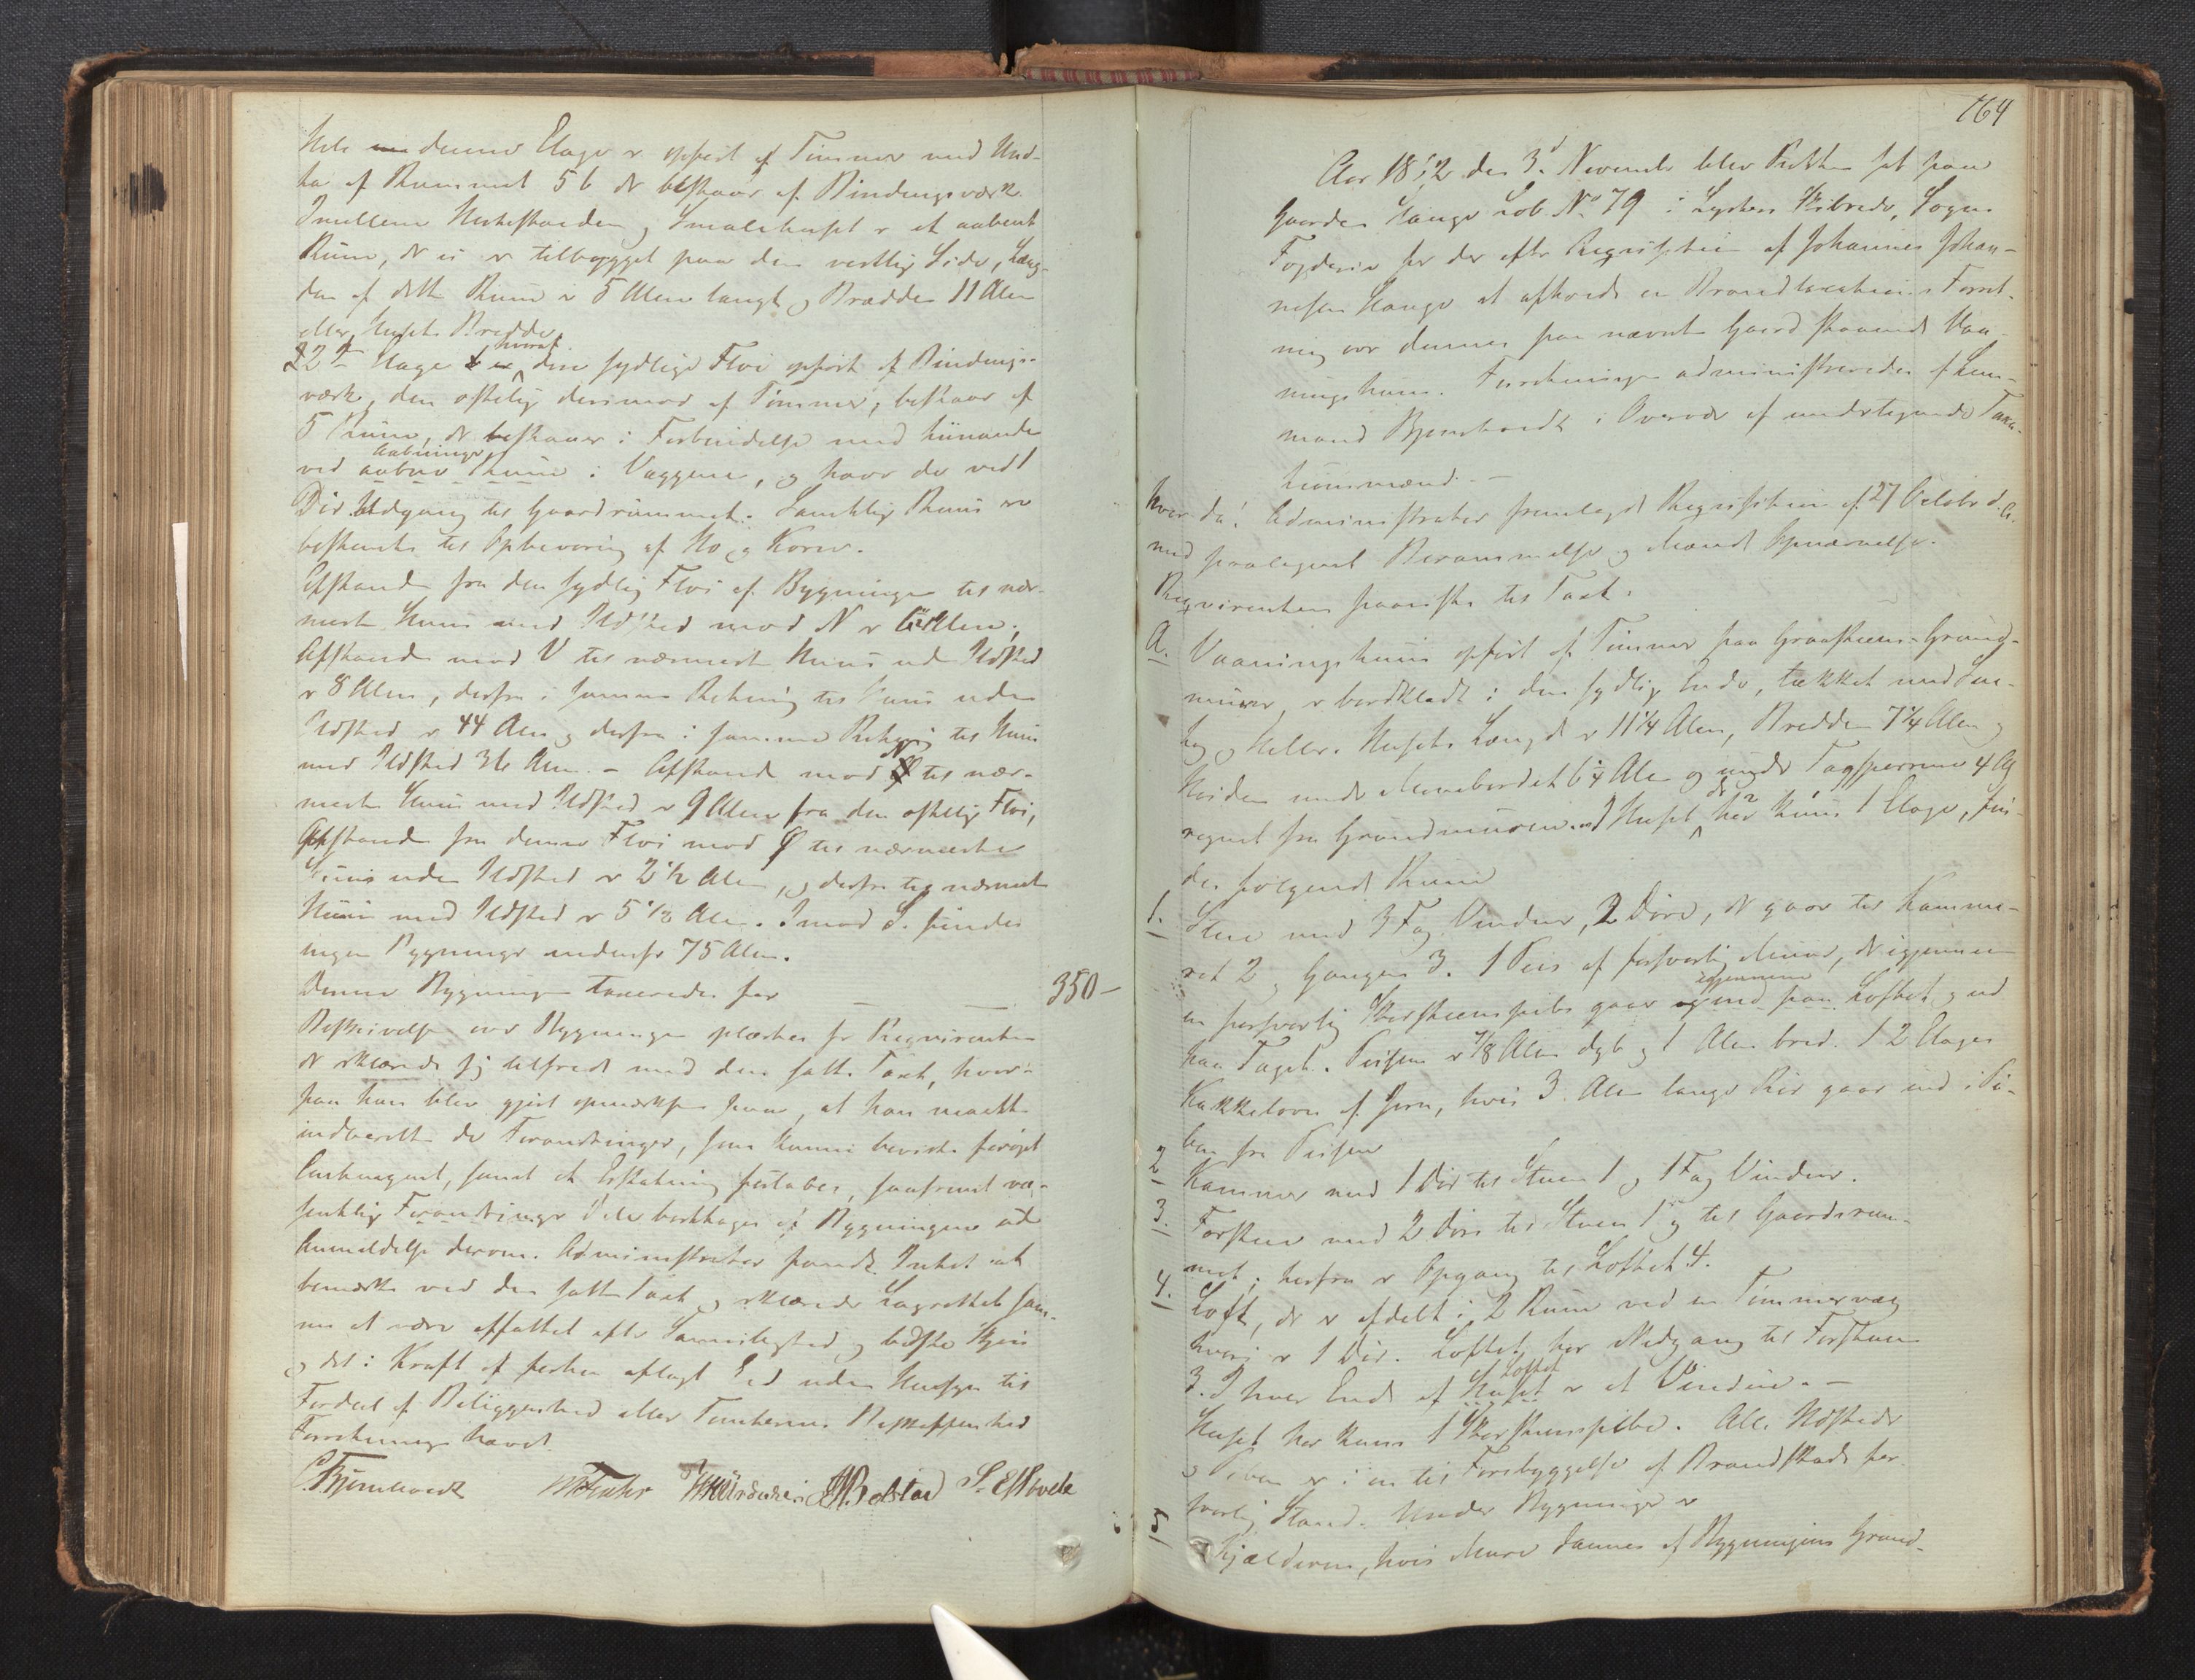 Hele denne Etage er opført af Tømmer med Und-
ta af Rummet 5 b der bestaaer af Bindingsværk.
Imellem Hestestalden og Smalehuset er et aabent
Rum, der ei er tilbygget paa den vestlige Side, Læng-
den af dette Rum er 5 Alen langt og Bredden 11 Alen
eller Husets Bredde.
2den Etage hvoraf den sydlige Fløi opført af Bindings-
værk, den østlige derimod af Tømmer, bestaar af
5 Rum, der bestaaer i Forbindelse med hinanden
ved aabne Rum Aabninger i Væggene, og har der ved 1
Dør Udgang til Gaardrummet. Samtlige Rum ere
bestemte til Opbevaring af Hø og Korn.
Afstanden fra den sydlige Fløi af Bygningen til nær-
meste Huus med Ildsted mod N er Alen;
Afstanden mod V til nærmeste Huus uden Ildsted
er 8 Alen, derfra i samme Retning til Huus uden
Ildsted er 44 Alen og derfra i samme Retning til Huus
med Ildsted 36 Alen. – Afstanden mod til nær-
meste Huus med Ildsted er 9 Alen fra den østlige Fløi,
Afstanden fra denne Fløi mod Ø til nærmeste
Huus uden Ildsted er 2 1/2 Alen, og derfra til nærmeste
Huus med Ildsted er 5 1/2 Alen. Imod S. findes
ingen Bygninger indenfor 75 Alen.
Denne Bygning taxeredes for — — 350 –
Beskrivelsen over Bygningen oplæstes for Requirenten
der erklærede sig tilfreds med den satte Taxt, hver-
paa han blev gjort opmærksom paa, at han maatte
indberette de Forandringer, som kunne bevirke forøget
Contingent, samt at Erstatning fortabes, saafremt væ-
sentlige Forandringer dele borttages af Bygningen uden
Anmeldelse derom. Administrator fandt Intet at
bemærke ved den satte Taxt og erklærede Lagrettet sam-
me at være affattet efter Samvittighed og bedste Skjøn
og det i Kraft af forhen aflagt Eed uden Hensyn til
Fordeel af Beliggenhed eller Tomtens Beskaffenhed
Forretningen hævet.
C. Bjernhardt J. N. Bolstad S. E. Hovda
164
Aar 1852 den 3d November blev Retten sat paa
Gaarden Hauge Løb No 79 i Lysters Skibrede, Sogns
Fogderie for der efter Requisition af Johannes Johan-
nesen Hauge at afholde en Brandtaxations Forret-
ning over dennes paa nævnte Gaard staaende Vaa-
ningshuus. Forretningen administreredes af Lens-
mand Bjernhardt i Overvær af undertegnede Taxa-
tionsmænd. –
Hvor da: Administrator fremlagde Requisitionen af 27 October d. A.
med paategnet Berammelse og Mænds Opnævnelse.
Requirenten paaviste til Taxt:
A. Vaaningshuus opført af Tømmer paa Graasteens-Grund-
muur, er bordklædt i den sydlige Ende, tækket med Næ-
ver og Heller. Husets Længde er 11 1/4 Alen, Bredden 7 1/4 Alen og
Høiden under Mønebordet 6 1/4 Alen og under Tagsperrene 4 Al
regnet fra Grundmuren. I Huset der har kuns 1 Etage, fin-
des følgende Rum
1. Stue med 3 Fag Vinduer, 2 Døre, der gaar til Kamme-
ret 2 og Gangen 3. 1 Peis af forsvarlig Muur, der igjennem
en forsvarlig Skorsteenspibe gaar igjennem ind paa Loftet og ud
paa Taget. Peisen er 7/8 Alen dyb og 1 Alen bred. 1 2 Etages
Kakkelovn af Jern, hvis 3 Alen lange Rør gaar ind i Pi-
ben fra Peisen
2 Kammer med 1 Dør til Stuen 1 og 1 Fag Vinduer.
3. Forstue med 2 Døre til Stuen 1 og til Gaardsrum-
met; herfra er Opgang til Loftet 4.
4. Loft, der er afdelt i 2 Rum ved en Tømmervæg
hvori er 1 Dør. Loftet har Nedgang til Forstuen
3. I hver Ende af Huset Loftet er et Vindue. –
Huset har kuns 1 Skorsteenspibe. Alle Ildsteder
og Piben er i en til Forebyggelse af Brandskade for-
svarlig Stand. Under Bygningen er
5 Kjælderen, hvis Mure dannes af Bygningens Grund-